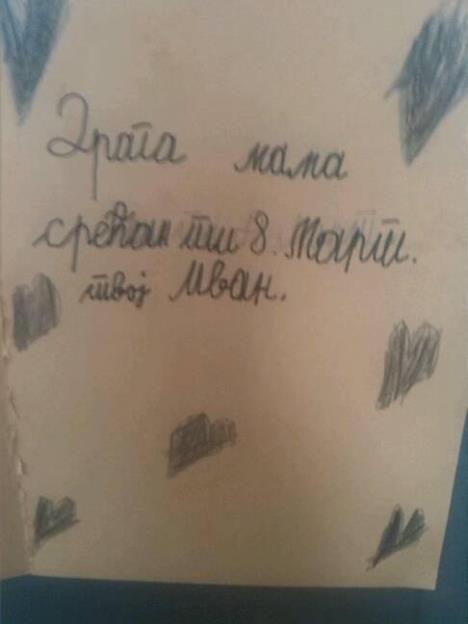 Драга мама
срећан ти 8. Март.
твој Иван.